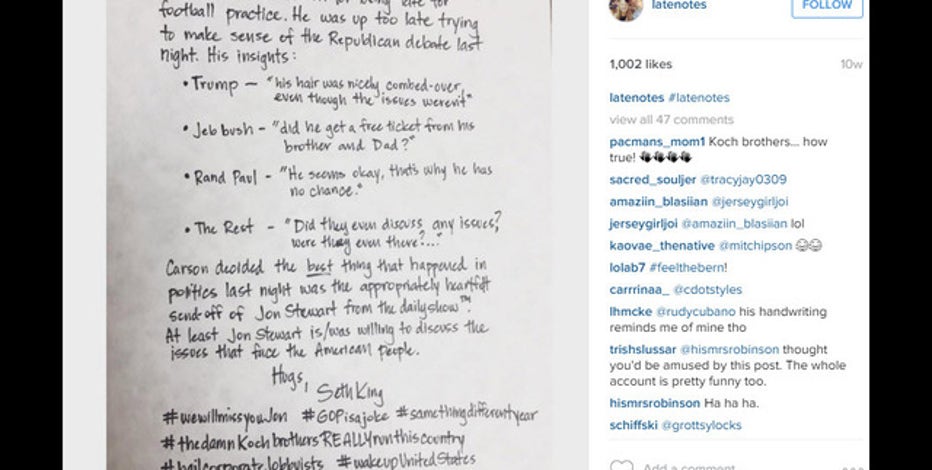 for being late for
football practice. He was up too late trying
to make sense of the Republican debate last
night. His insights:
• Trump – "his hair was nicely combed-over,
even though the issues weren't"
• Jeb bush – "did he get a free ticket from his
brother and Dad?"
• Rand Paul - "He seems okay, that's why he has
no chance."
• The Rest - "Did they even discuss any issues?
were they even there?..."
Carson decided the best thing that happened in
politics last night was the appropriately heartfelt
send-off of Jon Stewart from the dailyshow™.
At least Jon Stewart is/was willing to discuss the
issues that face the American people.
Hugs,
Seth King
#wewillmissyouJon #GOPisajoke #somethingdifferentyear
#thedamnKochbrothersREALLYrunthiscountry
#hailcorporatelobbyists #wakeupUnitedStates
latenotes
FOLLOW
1,002 likes 10w
latenotes #latenotes
view all 47 comments
pacmans_mom1 Koch brothers... how
true! 👏👏👏👏
sacred_souljer @tracyjay0309
amaziin_blasiian @jerseygirljoi
jerseygirljoi @amaziin_blasiian lol
kaovae_thenative @mitchipson 😂😂
lolab7 #feelthebern!
carrrinaa_ @cdotstyles
lhmcke @rudycubano his handwriting
reminds me of mine tho
trishslussar @hismrsrobinson thought
you'd be amused by this post. The whole
account is pretty funny too.
hismrsrobinson Ha ha ha.
schiffski @grottsylocks
Add a comment...